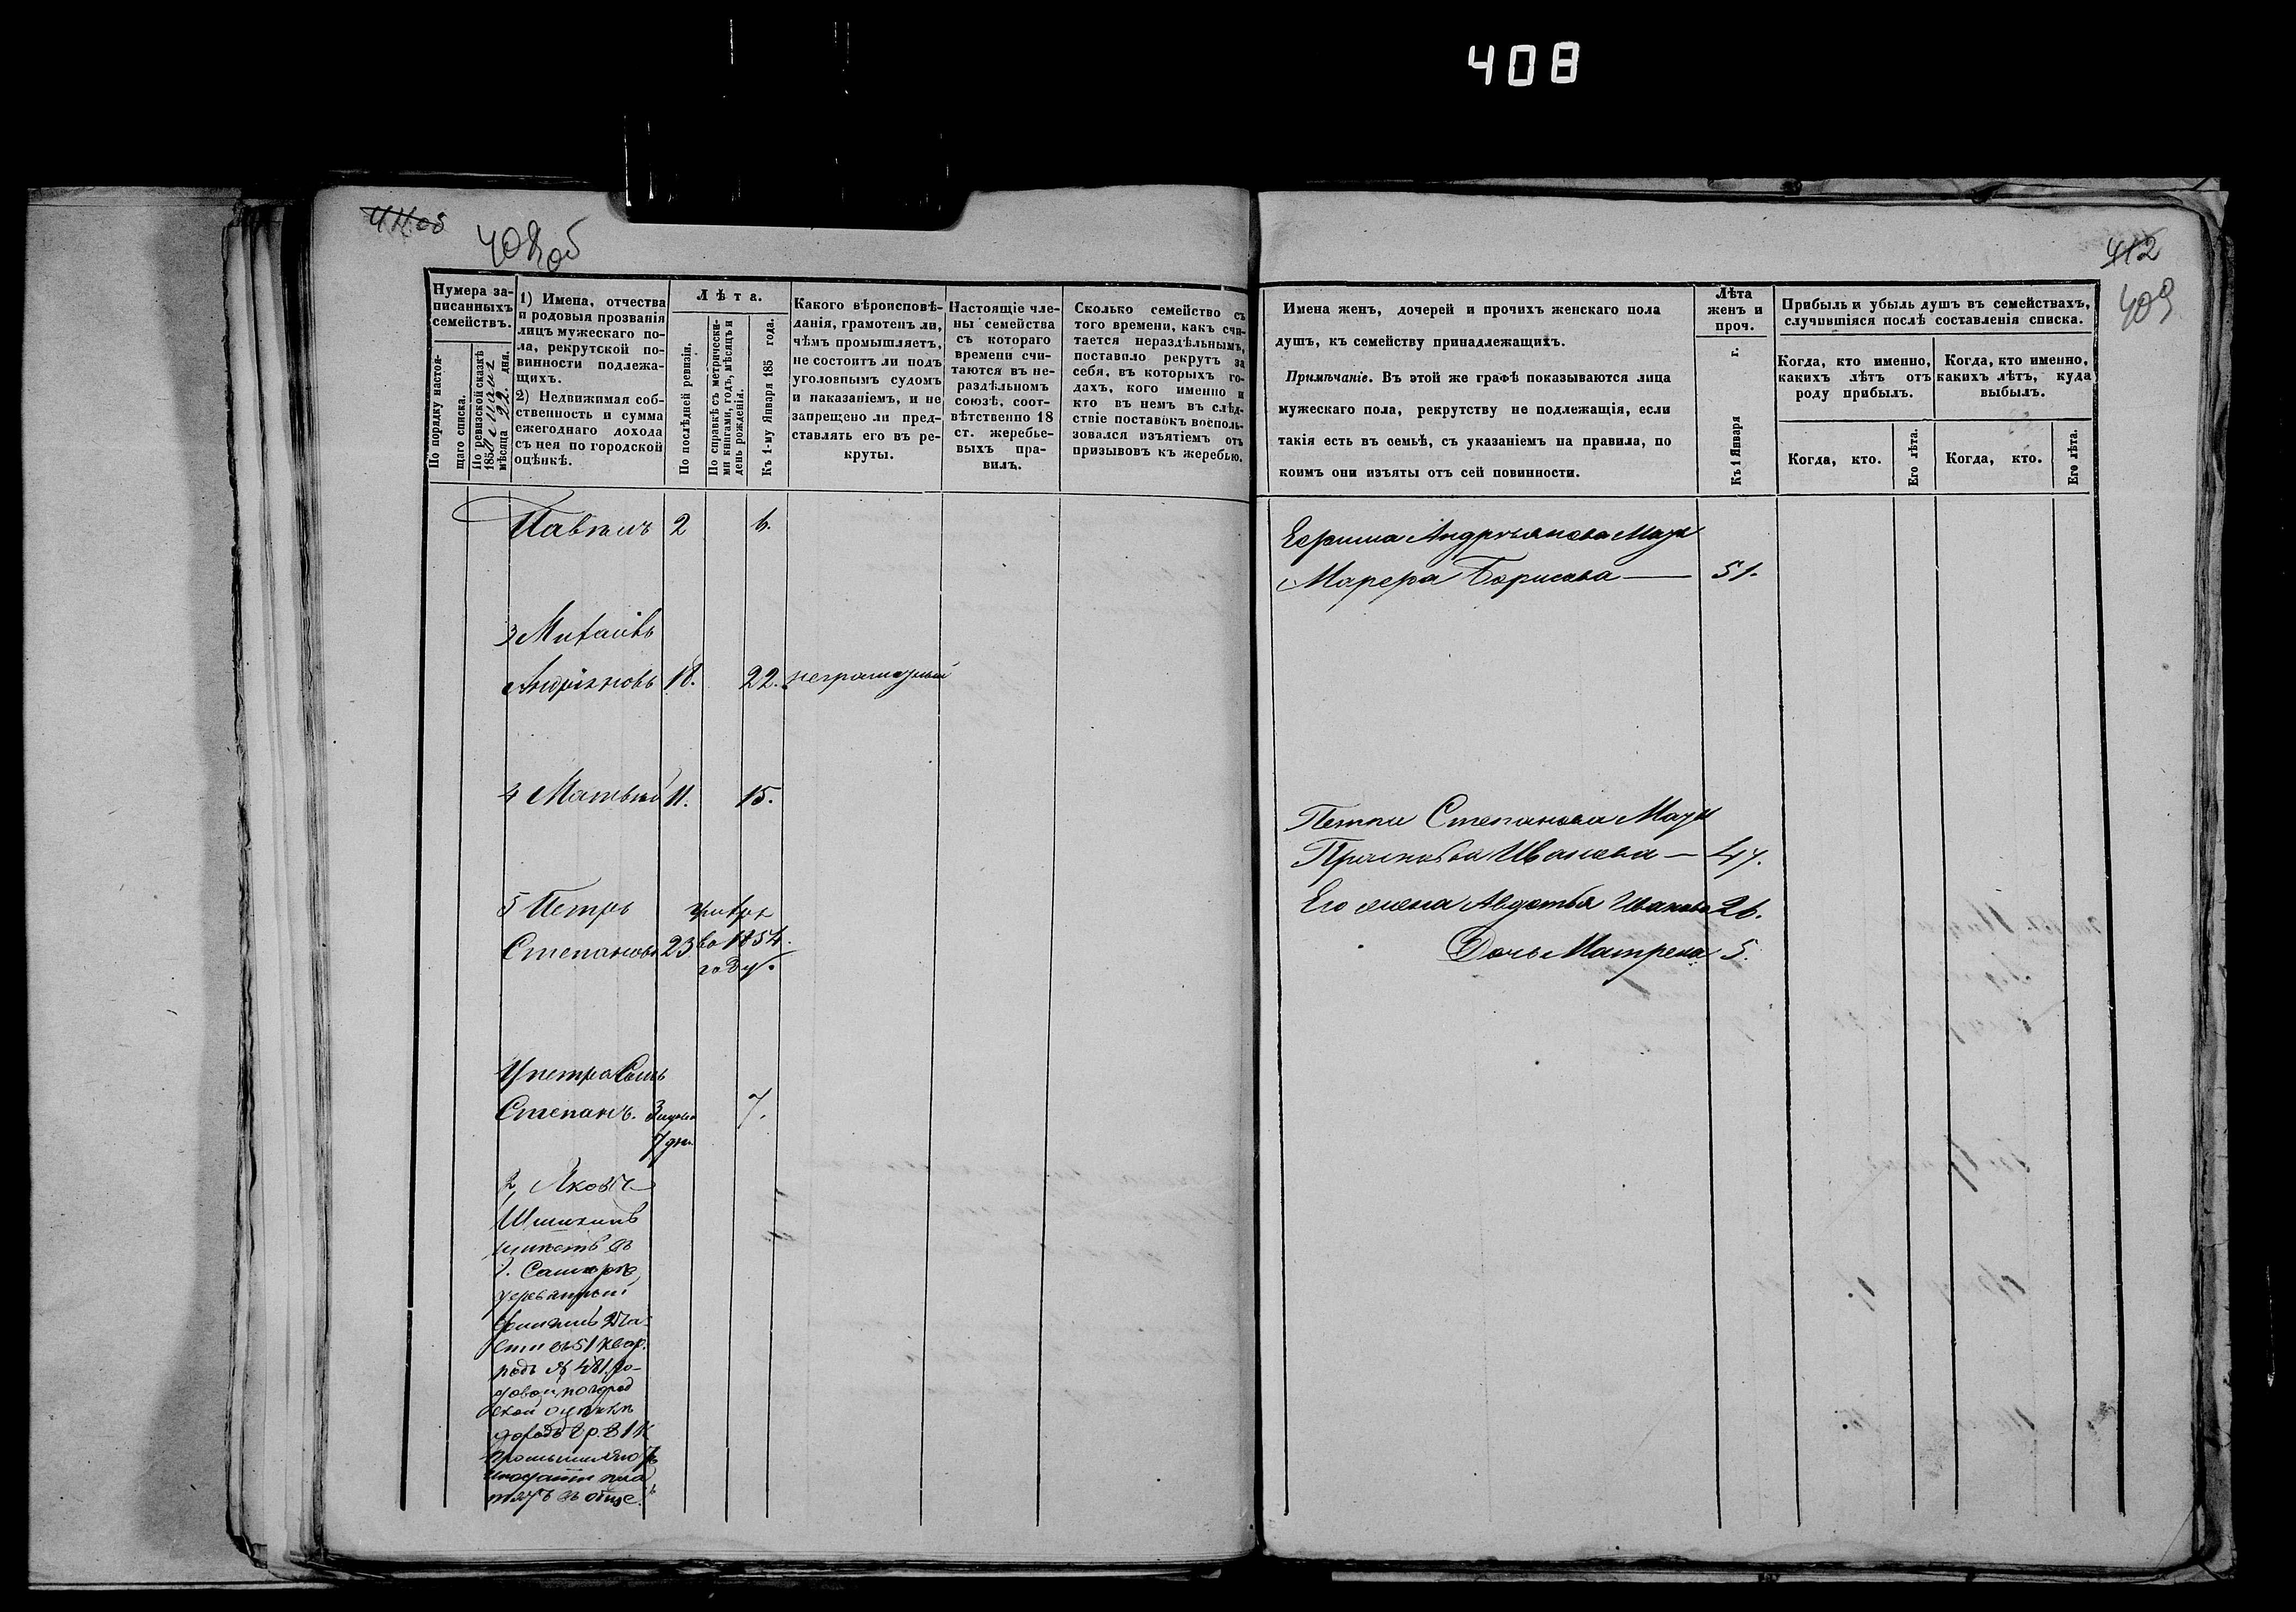 408
411об
408об
Нумера за-
писанныхъ
семействъ.
По порядку настоя-
щаго списка.
По ревизской сказкѣ
185
мѣсяца 22 дня.
1) Имена, отчества
и родовыя прозванія
лицъ мужескаго по-
ла, рекрутской по-
винности подлежа-
щихъ.
2) Недвижимая соб-
ственность и сумма
ежегоднаго дохода
съ нея по городской
оцѣнкѣ.
Лѣта.
По послѣдней ревизіи.
По справкѣ съ метрически-
ми книгами, годъ, мѣсяцъ и
день рожденія.
Къ 1-му Января 185 года.
Какого вѣроисповѣ-
данія, грамотенъ ли,
чѣмъ промышляетъ,
не состоитъ ли подъ
уголовнымъ судомъ
и наказаніемъ, и не
запрещено ли пред-
ставлять его въ ре-
круты.
Настоящіе чле-
ны семейства
съ котораго
времени счи-
таются въ не-
раздѣльномъ
союзѣ, соот-
вѣтственно 18
ст. жеребье-
выхъ пра-
вилъ.
Сколько семейство съ
того времени, какъ счи-
тается нераздѣльнымъ,
поставило рекрутъ за
себя, въ которыхъ го-
дахъ, кого именно и
кто въ немъ въ слѣд-
ствіе поставокъ восполь-
зовался изъятіемъ отъ
призывовъ къ жеребью.
Павелъ 2 6.
3 Михаилъ
Андріяновъ 18. 22. неграмотный
4 Матвѣй 11. 15.
5 Петръ
Степановъ 23 во 1854.
году.
У Петра Сынъ
Степанъ. 3 7.
7 дн.
2, Яковъ
Шишкинъ
имѣетъ въ
г. Самарѣ
деревянный
въ 51 квар.
подъ № 481, го-
довой по город
ской оцѣнкѣ
доходъ 8 р. 81 к
въ обще
412
409
Имена женъ, дочерей и прочихъ женскаго пола
душъ, къ семейству принадлежащихъ.
Примѣчаніе. Въ этой же графѣ показываются лица
мужескаго пола, рекрутству не подлежащія, если
такія есть въ семьѣ, съ указаніемъ на правила, по
коимъ они изъяты отъ сей повинности.
Лѣта
женъ и
проч.
Къ 1 Января г.
Прибыль и убыль душъ въ семействахъ,
случившіяся послѣ составленія списка.
Когда, кто именно,
какихъ лѣтъ отъ
роду прибылъ.
Когда, кто именно,
какихъ лѣтъ, куда
выбылъ.
Когда, кто.
Его лѣта.
Когда, кто.
Его лѣта.
Ефима Андріянова Мать
Марфа Борисова — 51.
Петра Степанова Мать
Прасковья Иванова — 47.
Его жена Авдотья Иванова 26.
Дочь Матрена 5.